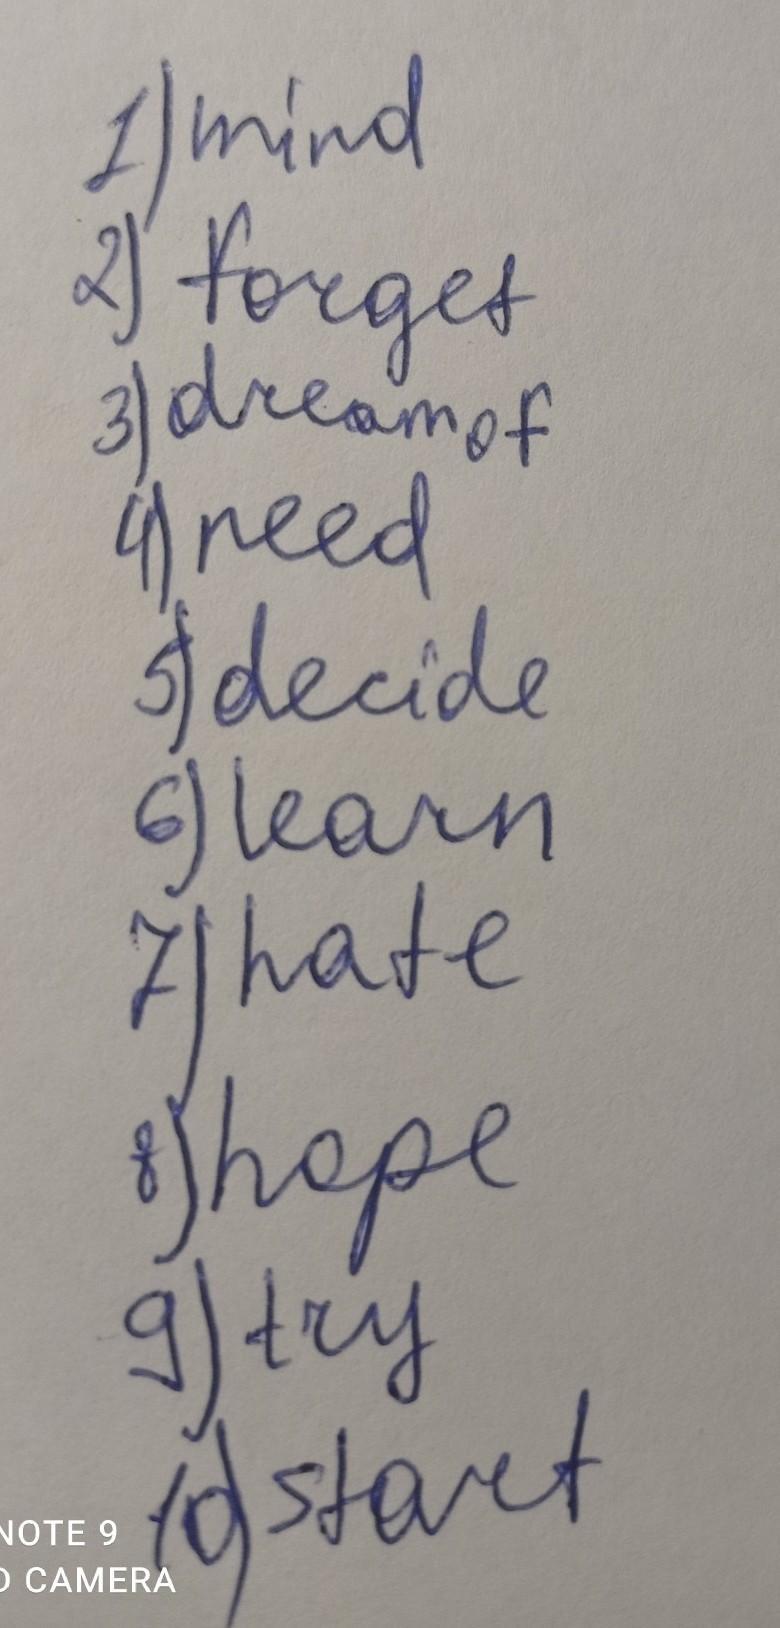 1) mind
2) forget
3) dream of
4) need
5) decide
6) learn
7) hate
8) hope
9) try
10) start
NOTE 9
CAMERA